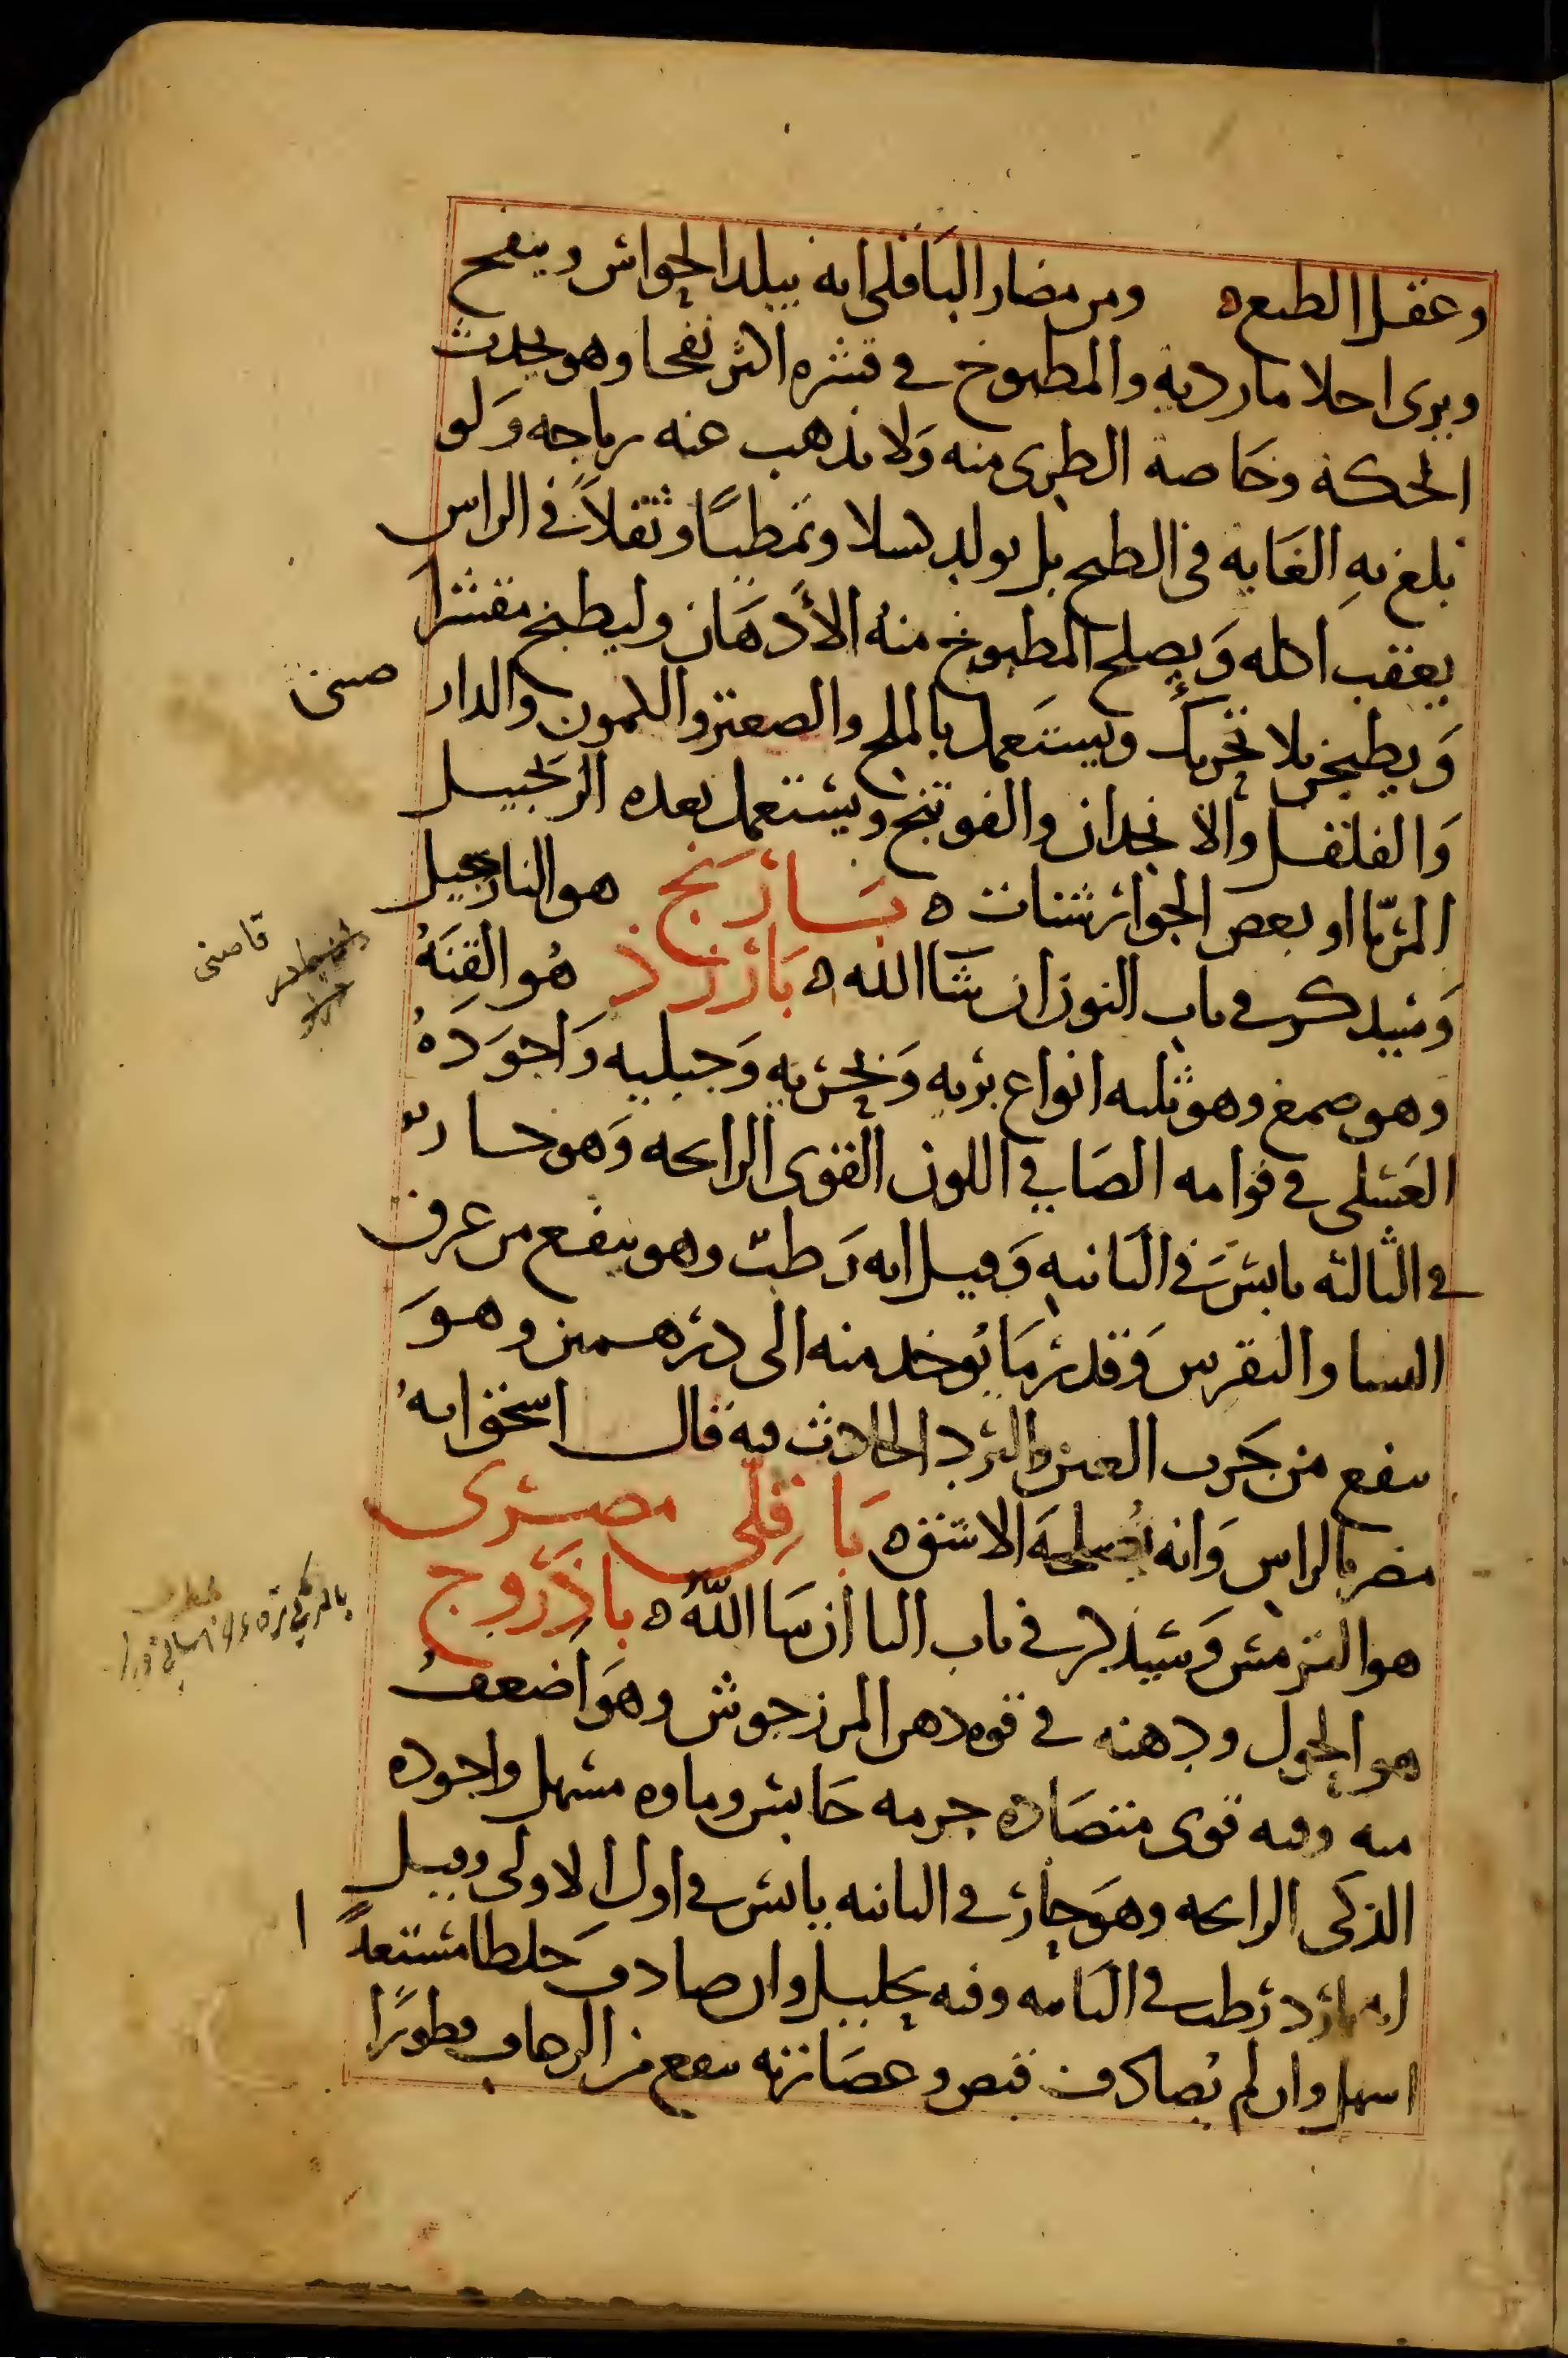 وعقل الطبع ه ومن مضار الباقلى انه يبلد الحواس وينفخ
ويرى احلاما ردية والمطبوخ في قشره اكثر نفخا وهو يحدث
الحكة وخاصة الطرى منه ولا يذهب عنه رياحه ولو
بلغ به الغاية في الطبخ بل يولد كسلا وتمطيا وثقلا في الراس
يعقب اكله ويصلح المطبوخ منه الأدهان وليطبخ مقشرا
ويطبخ بلا تحريك ويستعمل بالملح والصعتر والكمون والدار صينى
والفلفل والانجدان والفوتنج ويستعمل بعده الزنجبيل
المربّا او بعض الجوارشنات ه بارنج هو النارجيل
وسيذكر في باب النون ان شا الله ه بارزذ هو القنة
وهو صمغ وهو ثلثه انواع بريه وبحريه وجبليه واجوده
العسلى في قوامه الصافي اللون القوى الرايحه وهو حار
في الثالثه يابس في الثانيه وقيل انه رطب وهو ينفع من عرق
النسا والنقرس وقدر ما يوخد منه الى درهمين وهو
ينفع من جرب العين والبرد الحادث فيه قال اسحق انه
مضر بالراس وانه يصلحه الاشق ه باقلى مصرى
هو الترمس وسيذكر في باب التا ان شا الله ه باذروج
هو الحول ودهنه في قوه دهن المرزجوش وهو اضعف
منه وفيه قوى متضاده جرمه حابس وماوه مسهل واجوده
الذكى الرايحه وهو حار في الثانيه يابس في اول الاولى وقيل
انه بارد رطب في الثانيه وفيه تحليل وان صادف خلطا مستعدا
اسهل وان لم يصادف قبض وعصارته ينفع من الرعاف قطورا
قاصنى